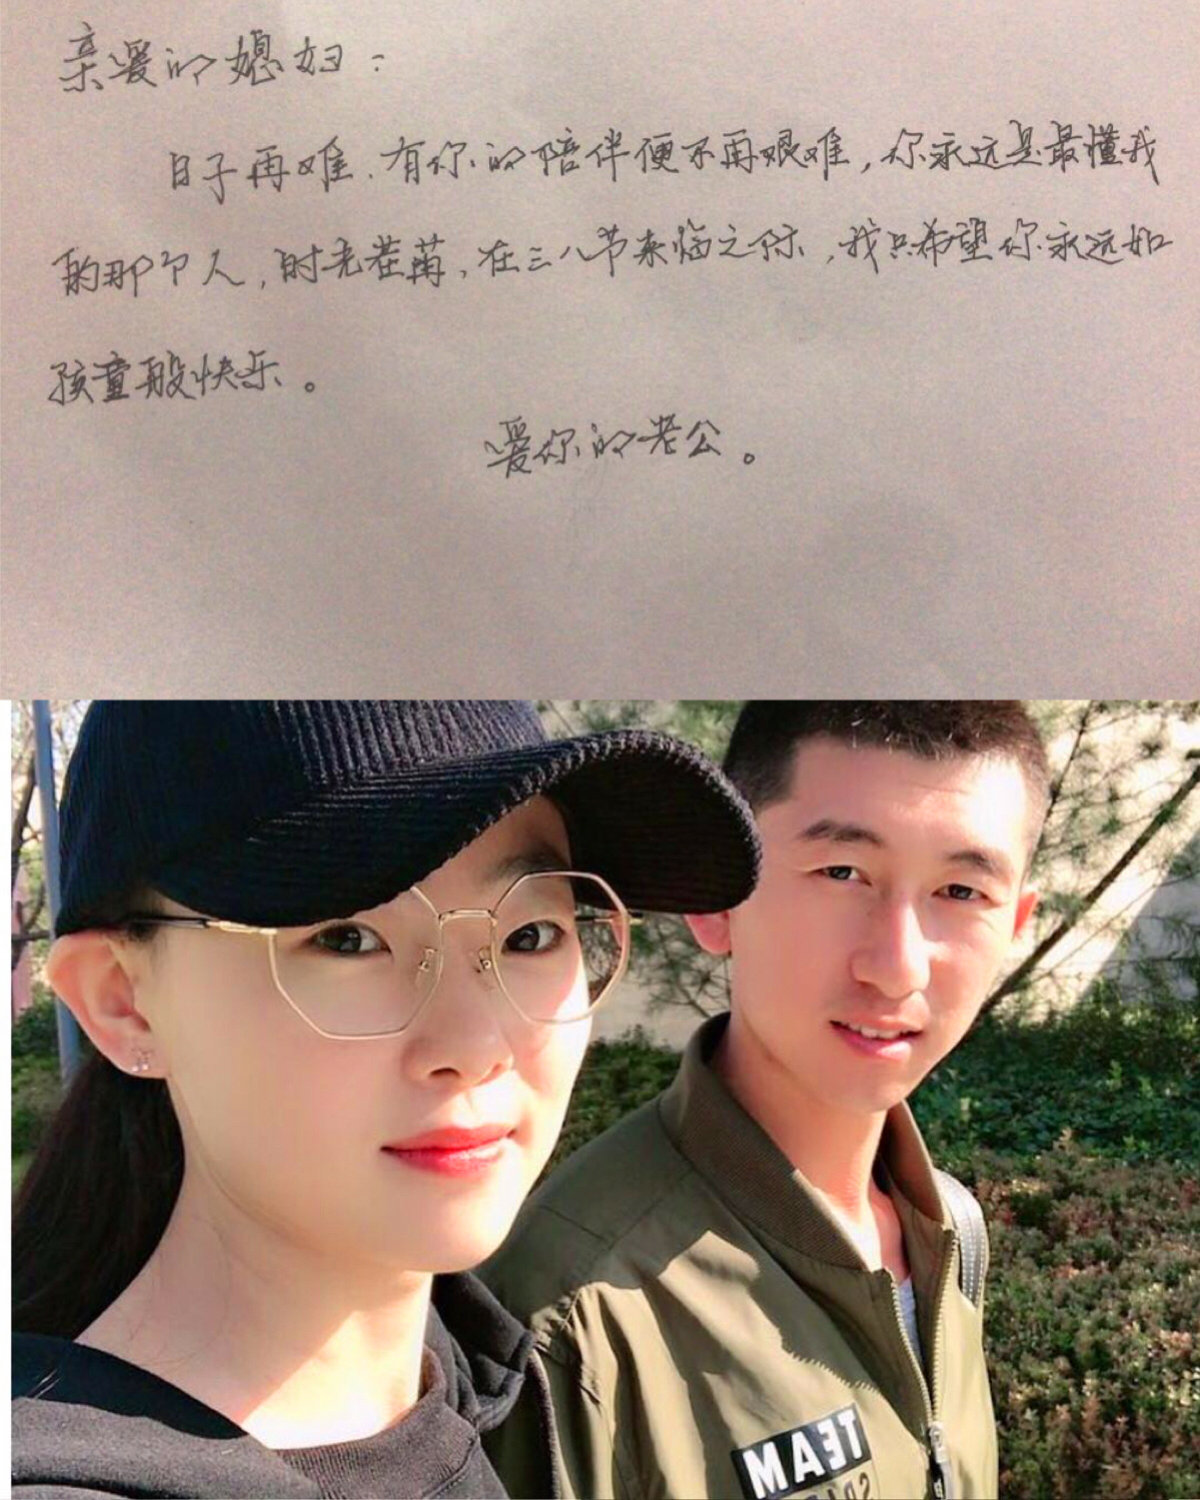 亲爱的媳妇：
日子再难、有你的陪伴便不再艰难，你永远是最懂我
的那个人，时光荏苒，在三八节来临之际，我只希望你永远如
孩童般快乐。
爱你的老公。
TEAM